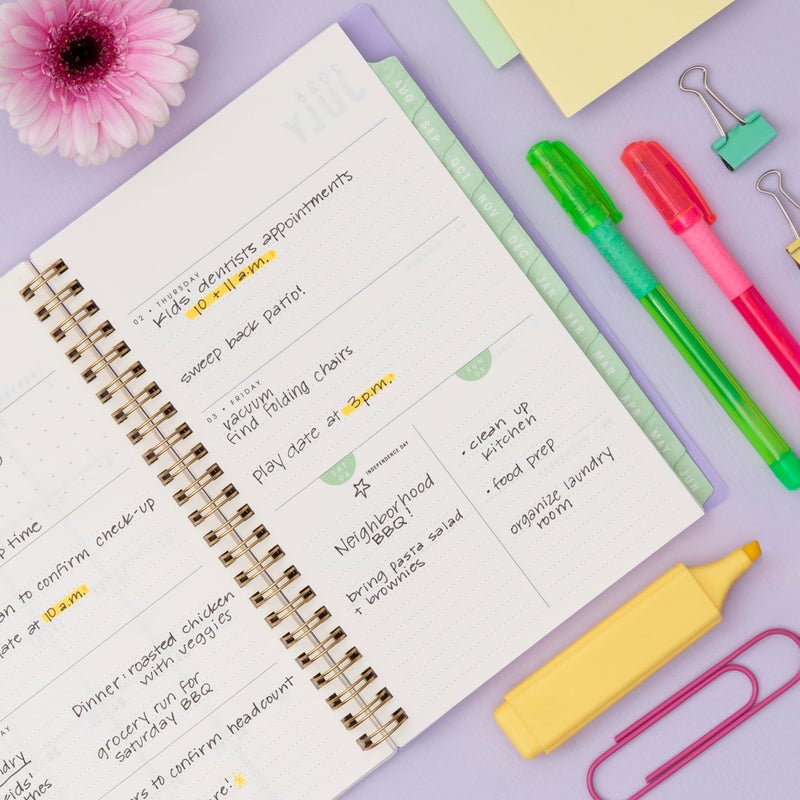 2026
JULY
AUG
SEP
OCT
NOV
DEC
JAN
FEB
MAR
APR
MAY
JUN
02 THURSDAY
Kids' dentists appointments
10 + 11 a.m.
sweep back patio!
03 FRIDAY
vacuum
find folding chairs
Play date at 3p.m.
SAT
04
INDEPENDENCE DAY
Neighborhood
BBQ!
bring pasta salad
+ brownies
SUN
05
• clean up
kitchen
• food prep
organize laundry
room
time
to confirm check-up
at 10 a.m.
Dinner: roasted chicken
with veggies
grocery run for
Saturday BBQ
to confirm headcount